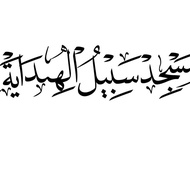 مَسْجِدْ سَبِيلُ الْهِدَايَة